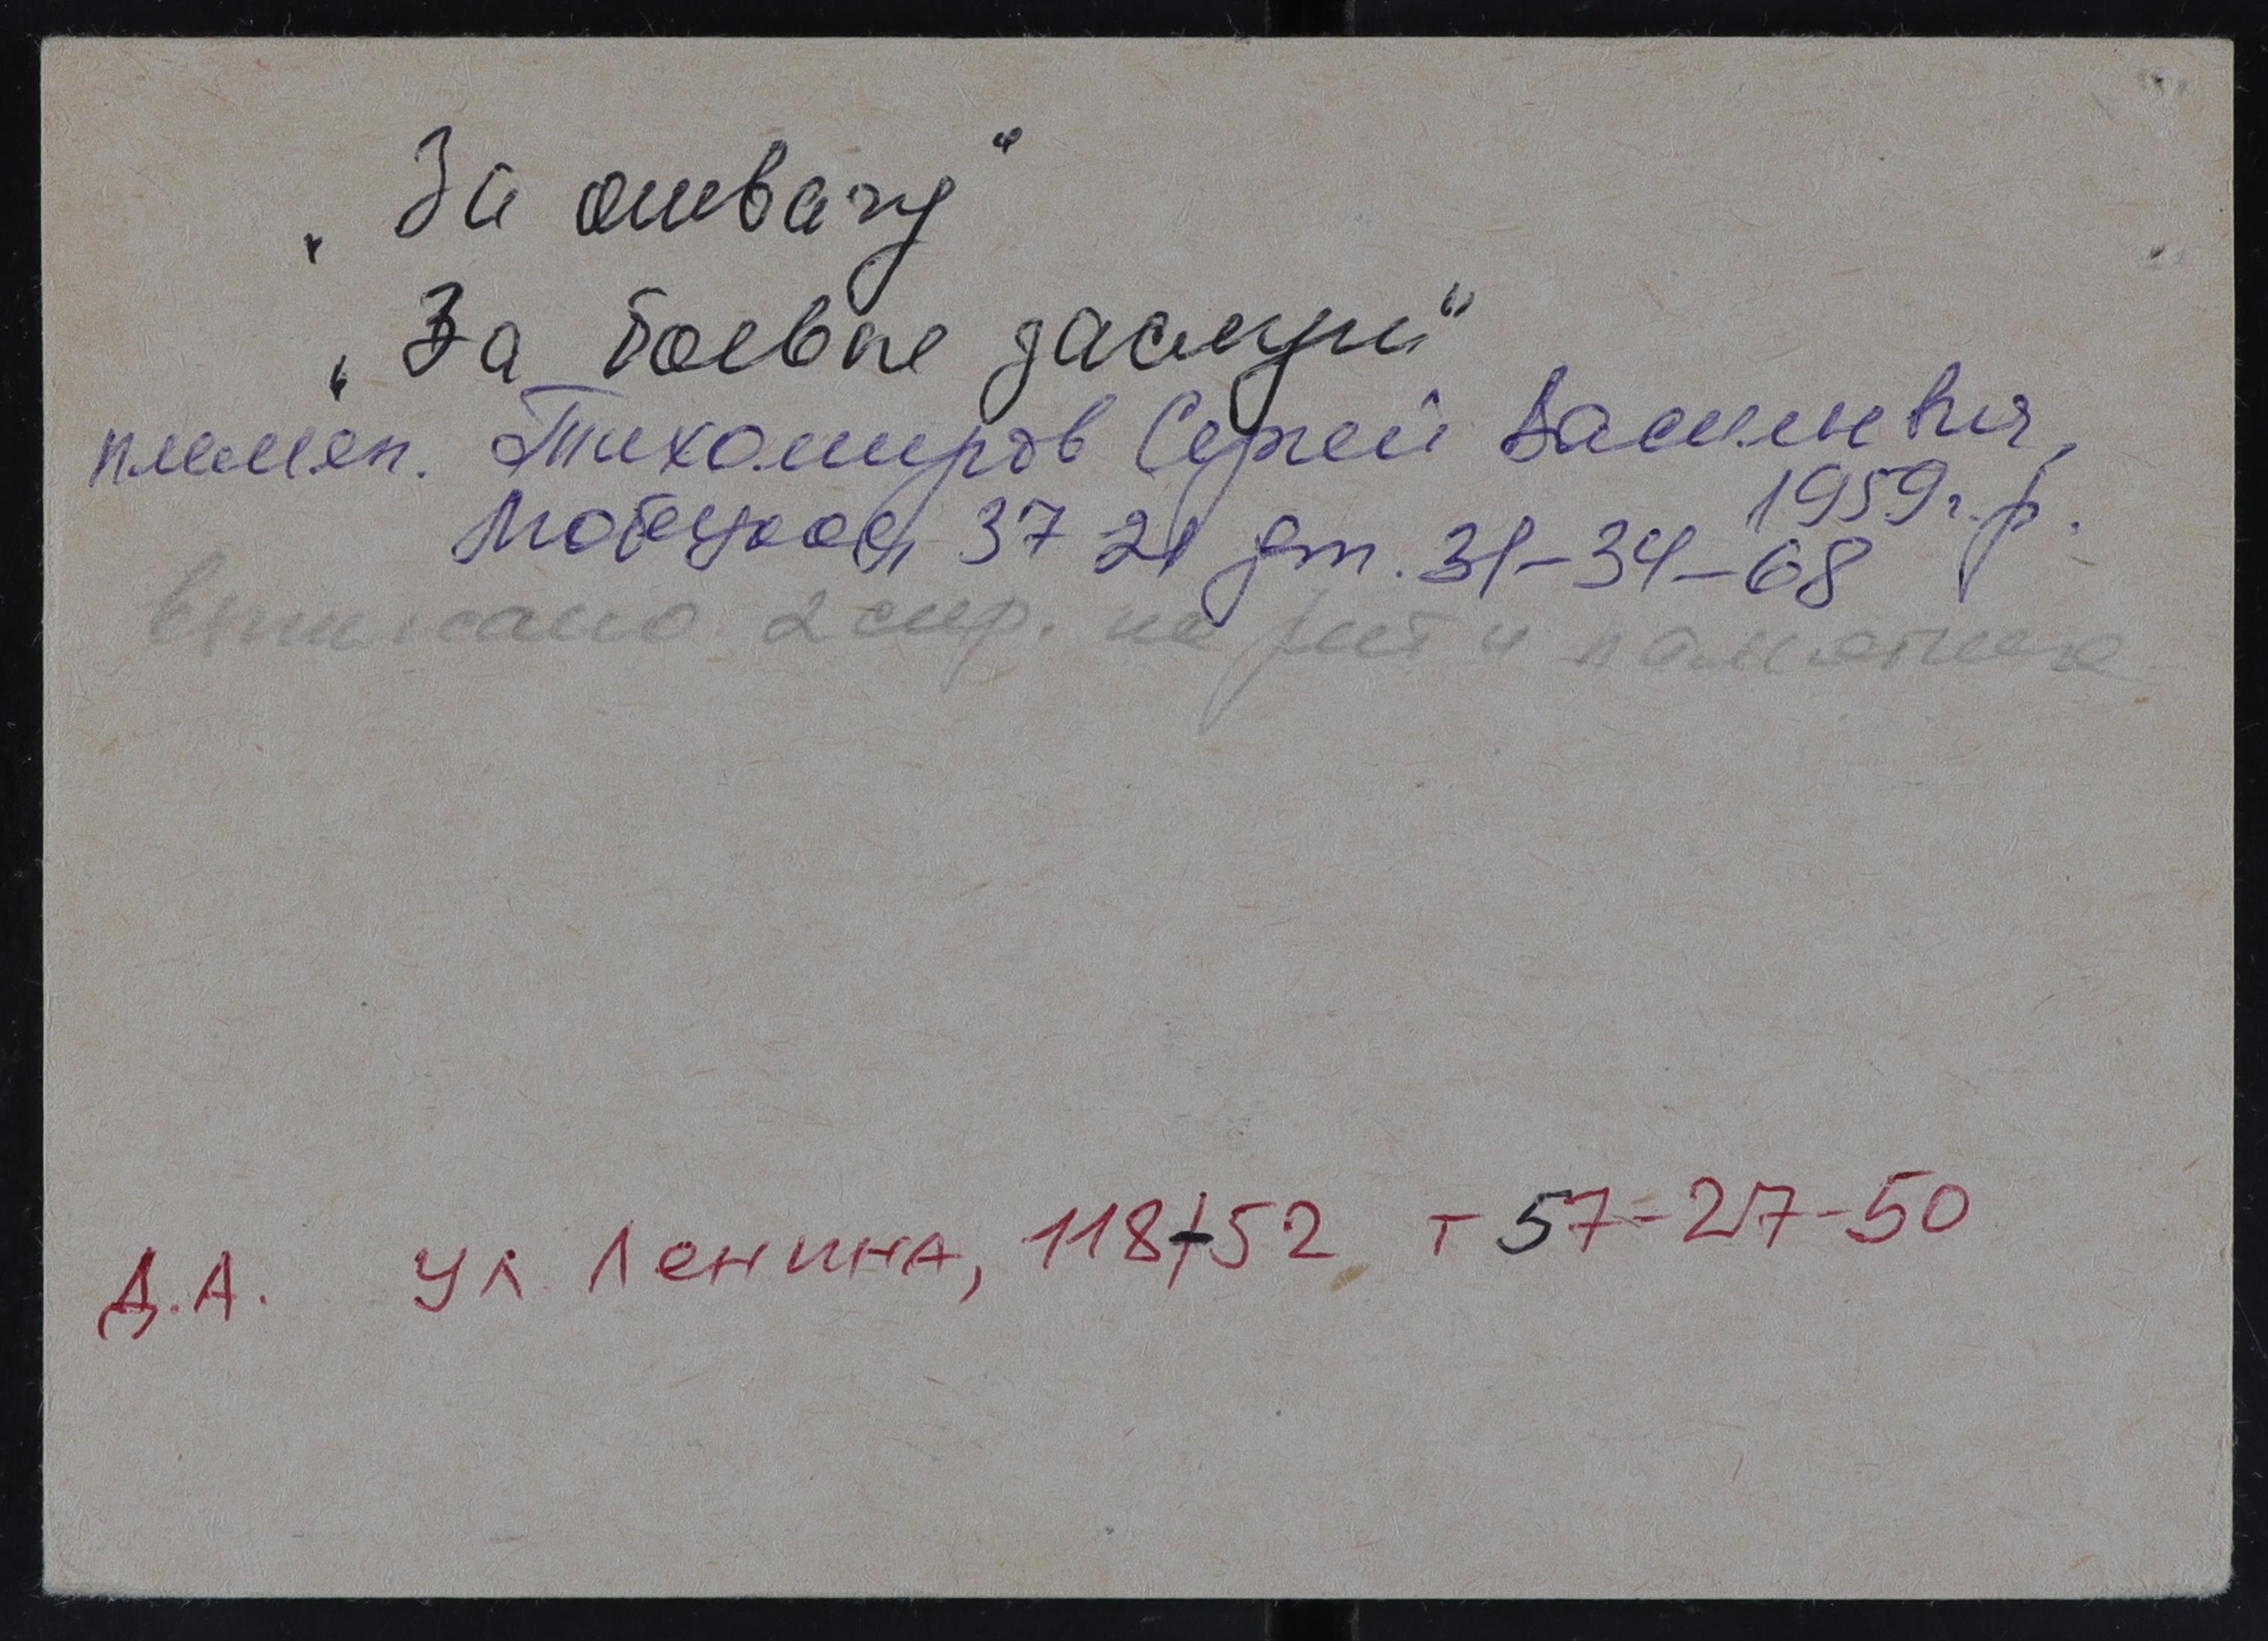 „За отвагу“
„За боевые заслуги“
племян. Тихомиров Сергей Васильевич,
1959 г.р.
37 21 дт. 31-34-68
выписано 2 спр. на рит и памятник
Д.А. ул. Ленина, 118/52 т 57-27-50